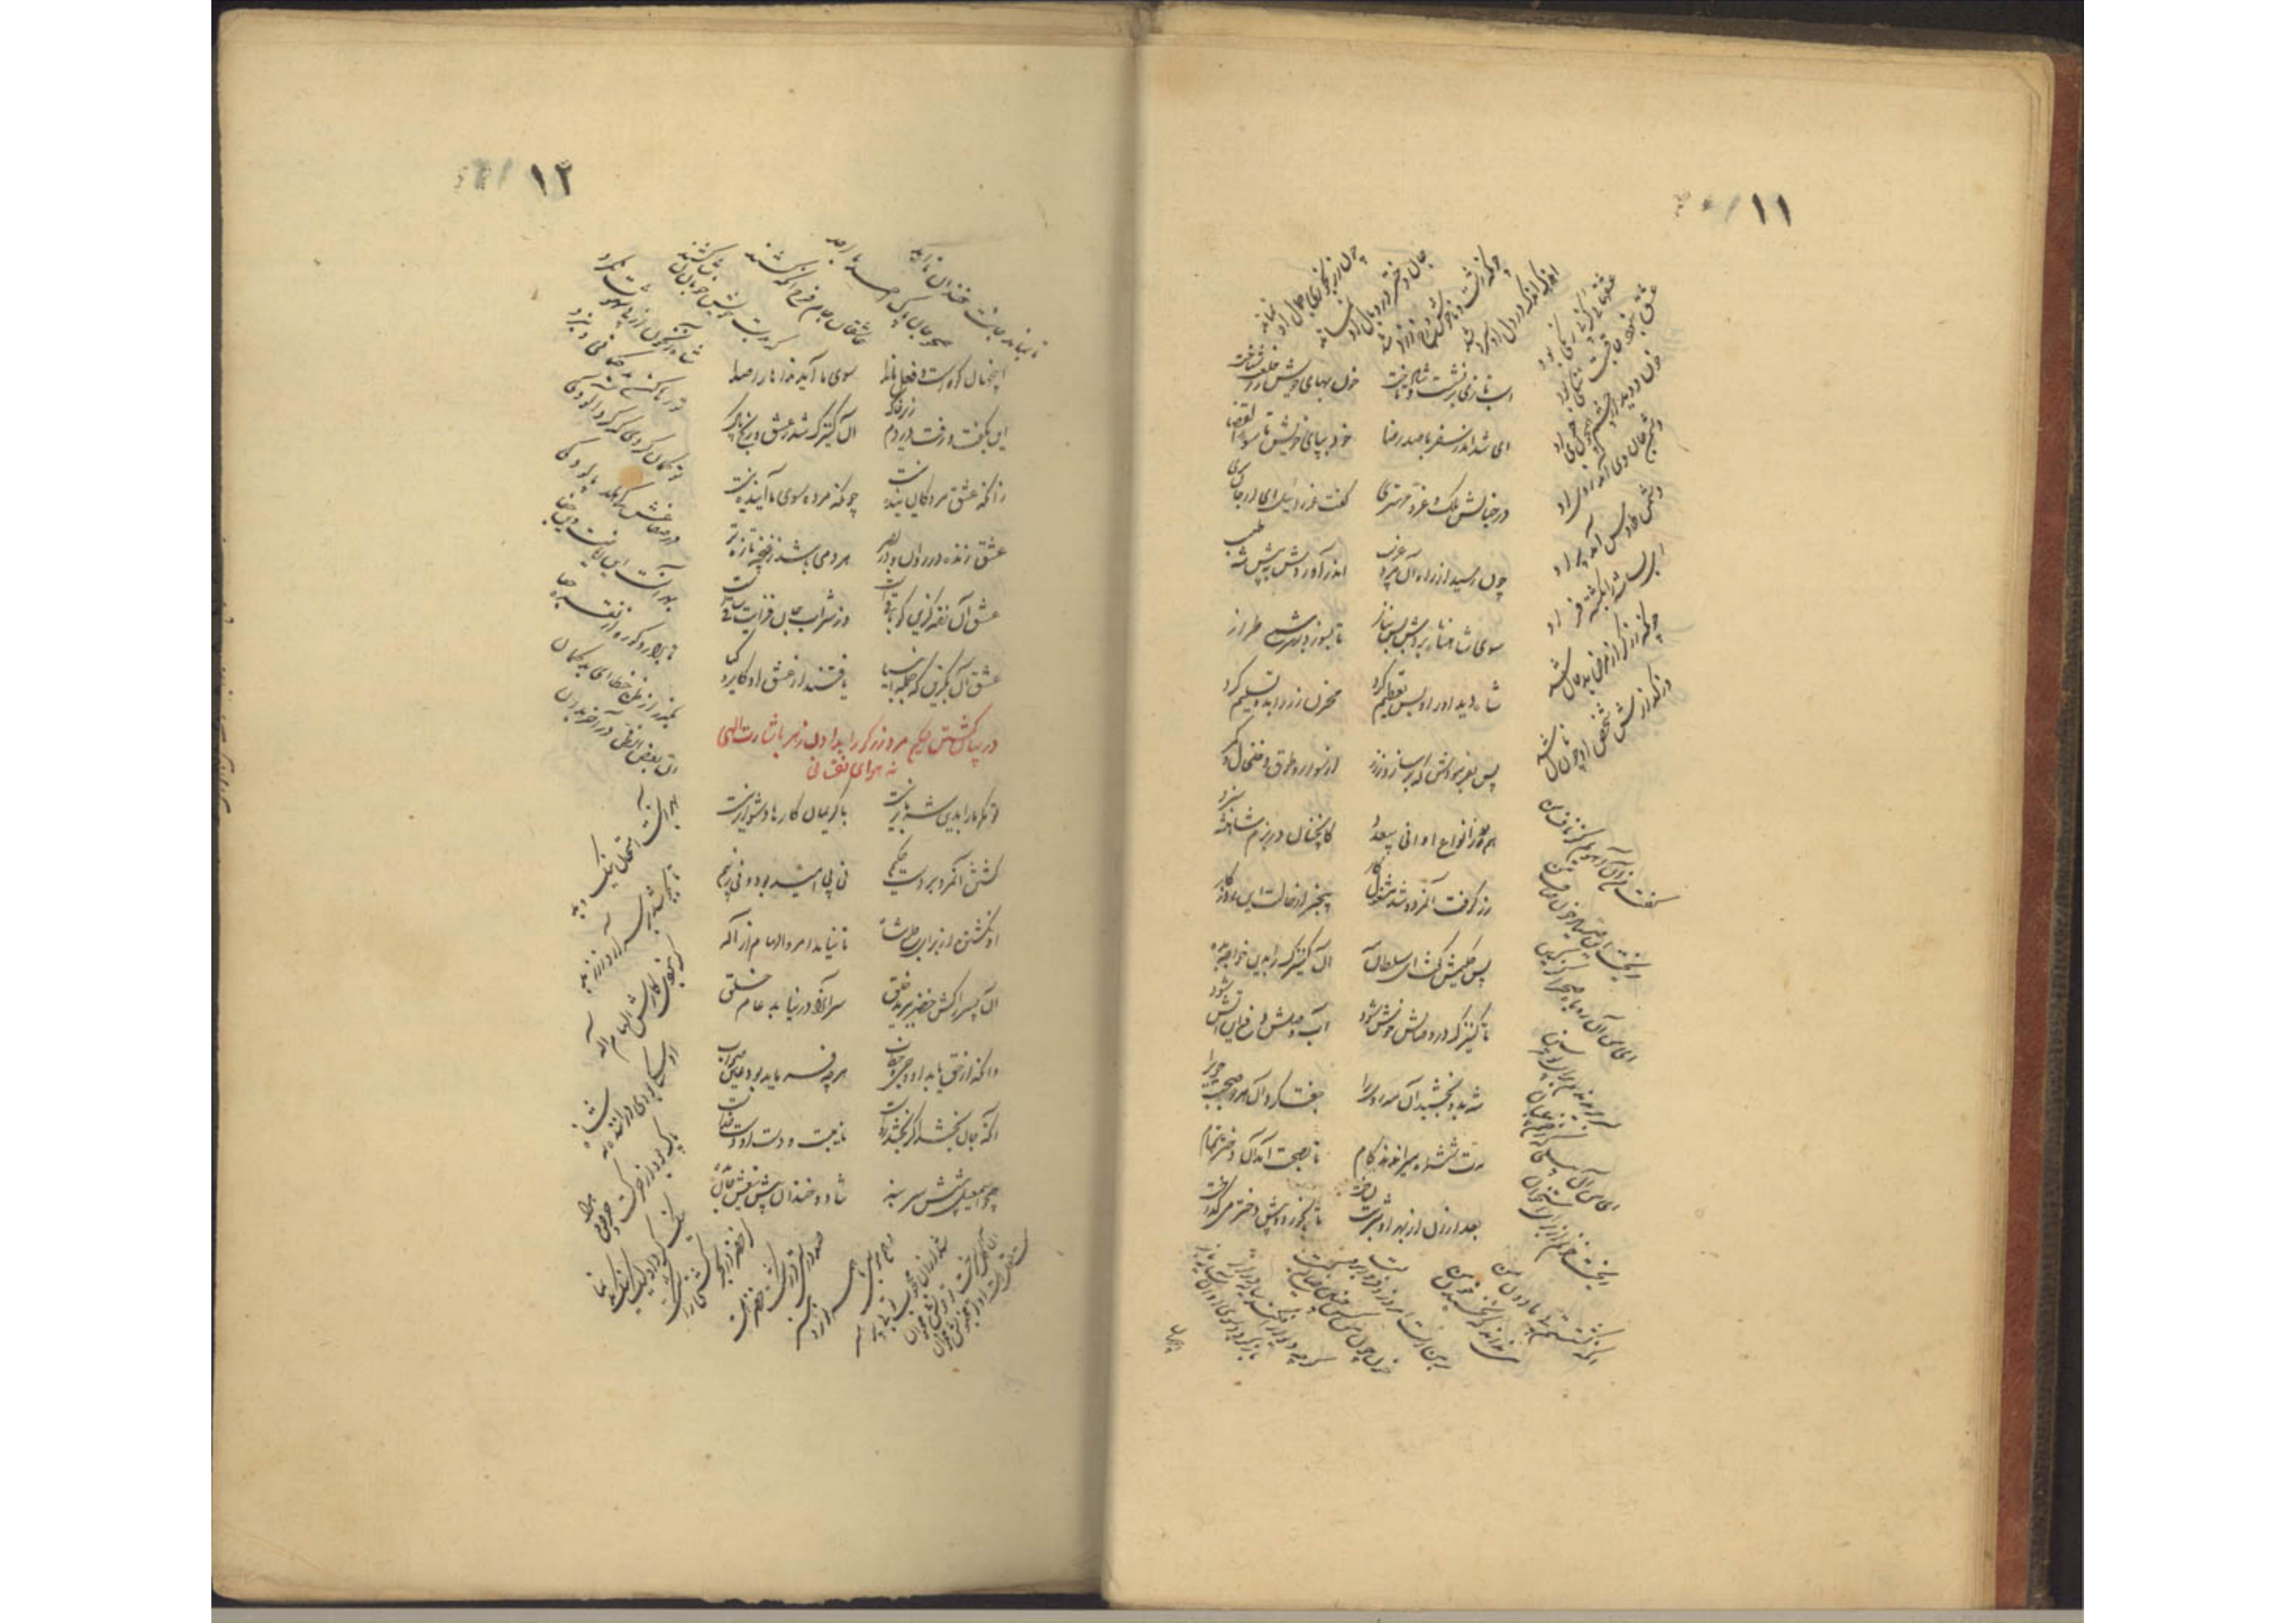 ۱۱
اسب تازی برنشست و شاد تاخت
خون بهای خویش را خلعت شناخت
ای شده اندر سفر با صد رضا
خود بپای خویش تا سوء القضا
در خیالش ملک و عز و مهتری
گفت عزرائیل
چون رسید از راه آن مرد غریب
اندر آوردش به پیش شه طبیب
سوی شاهنشاه بردش بس بناز
تا بسوزد بر سر شمع طراز
شاه دید او را و بس تعظیم کرد
مخزن زر را بدو تسلیم کرد
پس بفرمودش که بر سازد ز زر
از سوار و طوق و خلخال و کمر
هم ز انواع اوانی بیعدد
کانچنان در بزم شاهنشه سزد
زر گرفت آنمرد و شد مشغول کار
بیخبر از حالت این کارزار
پس حکیمش گفت ای سلطان مه
آن کنیزک را بدین خواجه بده
تا کنیزک در وصالش خوش شود
آب وصلش دفع این آتش شود
شه بدو بخشید آن مه روی را
جفت کرد آن هر دو صحبت جوی را
مدت ششماه میراندند کام
تا بصحت آمد آن دختر تمام
بعد از آن از بهر او شربت بساخت
تا بخورد و پیش دختر میگداخت
چون ز رنجوری جمال او نماند
جان دختر در وبال او نماند
چونکه زشت و ناخوش و رخ زرد شد
اندک اندک در دل او سرد شد
عشقهائی کز پی رنگی بود
عشق نبود عاقبت ننگی بود
خون دوید از چشم همچون جوی او
دشمن جان وی آمد روی او
دشمن طاوس آمد پر او
ای بسا شه را بکشته فر او
چونکه زرگر از مرض بدحال شد
وز گدازش شخص او چون نال شد
گفت من آن آهوم کز ناف من
ریخت آن صیاد خون صاف من
ای من آن روباه صحرا کز کمین
سر بریدندم برای پوستین
ای من آن پیلی که زخم پیلبان
ریخت خونم از برای استخوان
آنکه کشتستم پی مادون من
می نداند که نخسبد خون من
بر من است امروز و فردا بر وی است
خون چون من کس چنین ضایع کی است
گرچه دیوار افکند سایه دراز
باز گردد سوی او آن سایه باز
اینجهان
۱۲
اینجهان کوه است و فعل ما ندا
سوی ما آید نداها را صدا
این بگفت و رفت در دم زیر خاک
آن کنیزک شد ز عشق و رنج پاک
زانکه عشق مردگان پاینده نیست
چونکه مرده سوی ما آینده نیست
عشق زنده در روان و در بصر
هر دمی باشد ز غنچه تازه تر
عشق آن زنده گزین کو باقی است
وز شراب جان فزایت ساقی است
عشق آن بگزین که جمله انبیا
یافتند از عشق او کار و کیا
در بیان کشتن حکیم مرد زرگر را بدادن زهر باشارت الهی
نه بهوای نفسانی
تو مگو ما را بدان شه بار نیست
با کریمان کارها دشوار نیست
کشتن آنمرد بر دست حکیم
نی پی امید بود و نی ز بیم
او نکشتش از برای طبع شاه
تا نیامد امر و الهام از اله
آن پسر را کش خضر ببرید حلق
سر آنرا در نیابد عام خلق
وانکه از حق یابد او وحی و خطاب
هرچه فرماید بود عین صواب
آنکه جان بخشد اگر بکشد رواست
نایبست و دست او دست خداست
همچو اسمعیل پیشش سر بنه
شاد و خندان پیش تیغش جان بده
تا بماند جانت خندان تا ابد
همچو جان پاک احمد با احد
عاشقان جام فرح آنگه کشند
که بدست خویش خوبانشان کشند
شاه آن خون از پی شهوت نکرد
تو رها کن بدگمانی و نبرد
تو گمان کردی که کرد آلودگی
در صفا غش کی هلد پالودگی
بهر آنست این ریاضت وین جفا
تا برآرد کوره از نقره جفا
بگذر از ظن خطا ای بدگمان
ان بعض الظن آخر بدان
بهر آنست امتحان نیک و بد
تا بجوشد بر سر آرد زر زبد
گر نبودی کارش الهام اله
او سگی بودی دراننده نه شاه
پاک بود از شهوت و حرص و هوا
نیک کرد او لیک نیک بد نما
گر خضر در بحر کشتی را شکست
صد درستی در شکست خضر هست
وهم موسی با همه نور و هنر
شد از آن محجوب تو بی پر مپر